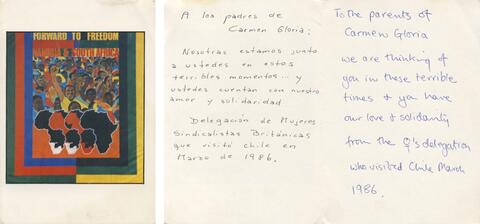 FORWARD TO FREEDOM
NAMIBIA & SOUTH AFRICA
A los padres de
Carmen Gloria:
Nosotras estamos junto
a ustedes en estos
terribles momentos... y
ustedes cuentan con nuestro
amor y solidaridad
Delegación de Mujeres
Sindicalistas Británicas
que visitó chile en
Marzo de 1986.
To the parents of
Carmen Gloria
we are thinking of
you in these terrible
times & you have
our love & solidarity
from the Q's delegation
who visited Chile March
1986.